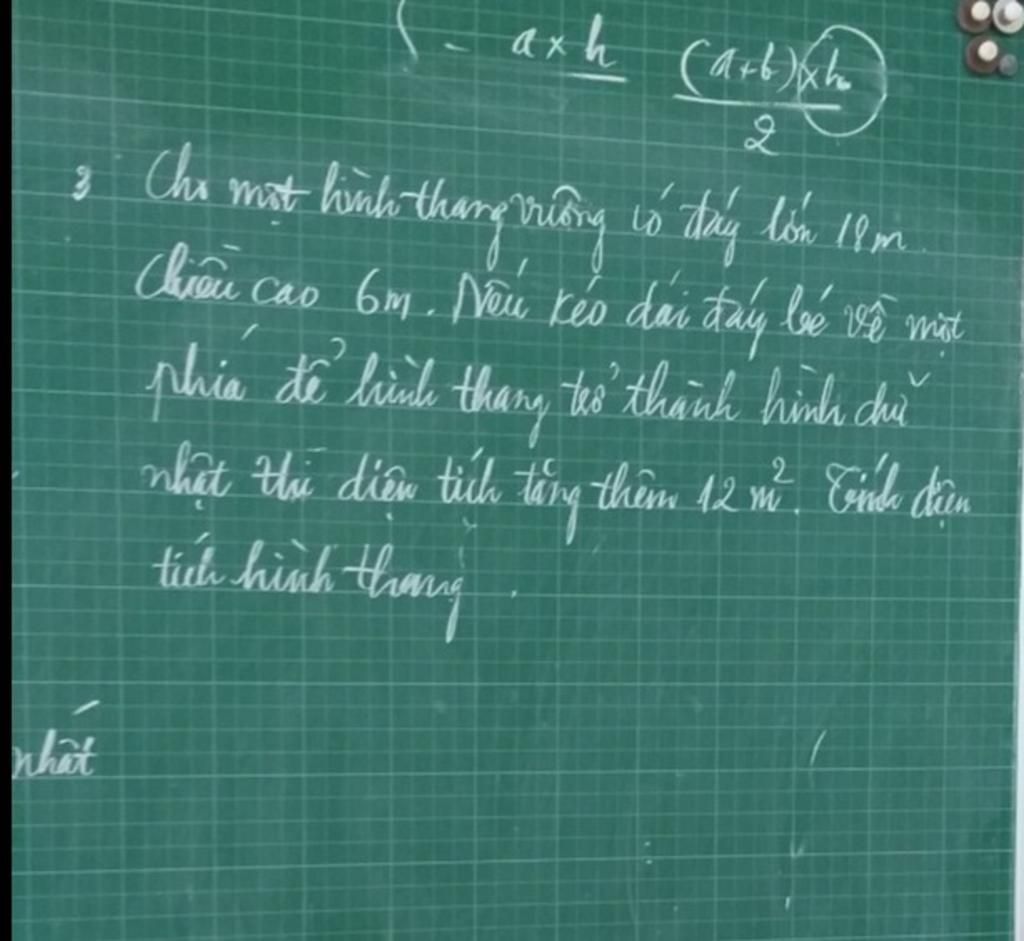 - a×h (a+b)×h
2
3 Cho một hình thang vuông có đáy lớn 18m.
Chiều cao 6m. Nếu kéo dài đáy bé về một
phía để hình thang trở thành hình chữ
nhật thì diện tích tăng thêm 12 m². Tính diện
tích hình thang.
nhất